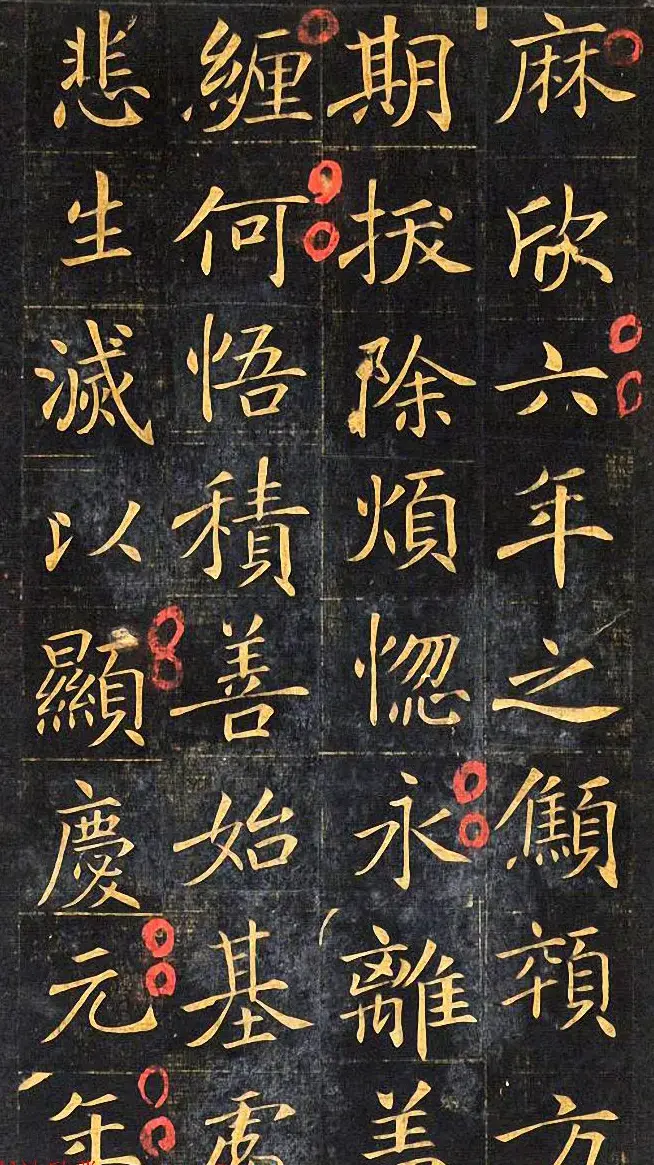 麻欣六年之顦顇方
期拔除煩惱永離蓋
纏何悟積善始基處
悲生滅以顯慶元年